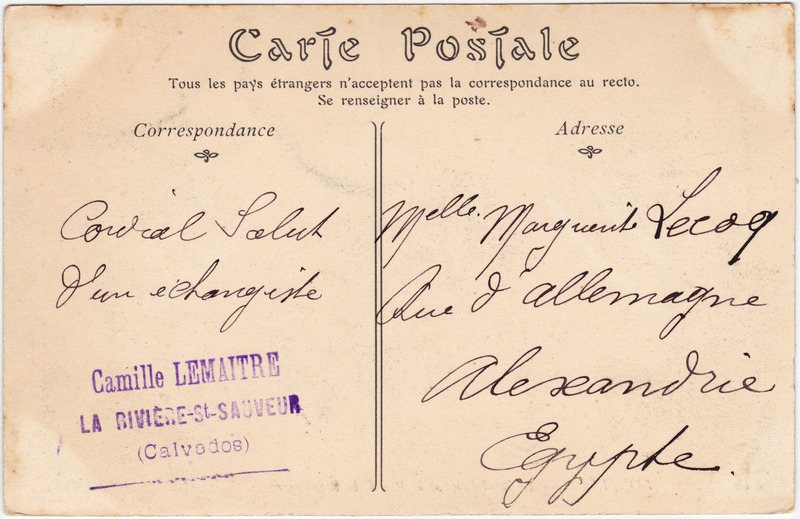 Carte Postale
Tous les pays étrangers n'acceptent pas la correspondance au recto.
Se renseigner à la poste.
Correspondance
Cordial Salut
d'un échangiste
Camille LEMAITRE
LA RIVIÈRE-St-SAUVEUR
(Calvados)
Adresse
Melle. Marguerite Lecoq
Rue d'allemagne
Alexandrie
Egypte.